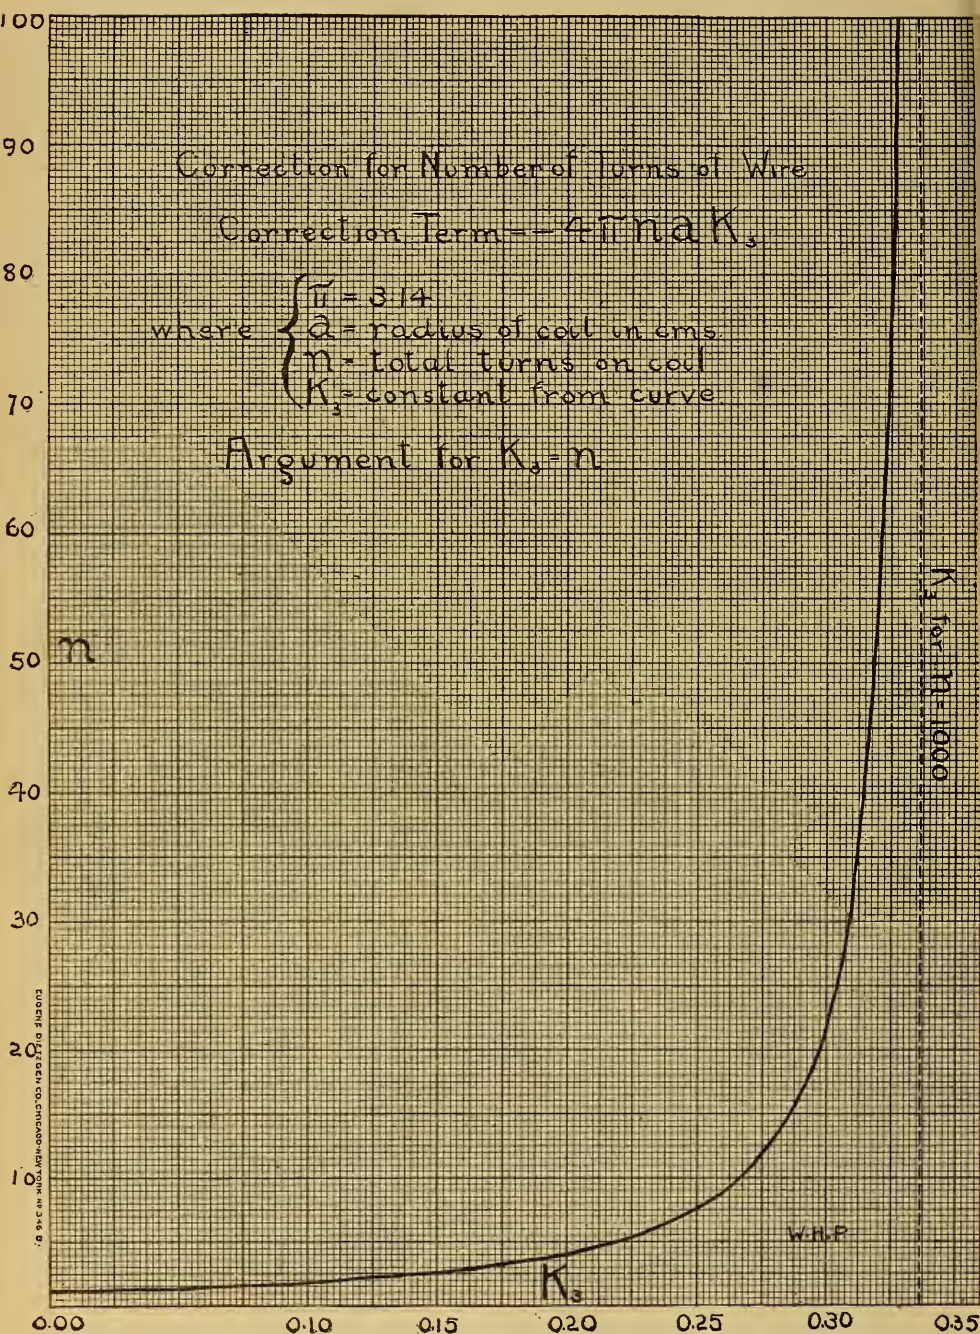 100
90
Correction for Number of Turns of Wire
Correction Term = -4πnaK₃
80
where
π = 3.14
a = radius of coil in cms.
n = total turns on coil
K₃ = constant from curve.
70
Argument for K₃ = n
60
K₃ for n=1000
50
n
40
30
20
10
EUGENE DIETZGEN CO. CHICAGO-NEW YORK Nº 346 D.
W.H.P
K₃
0.00 0.10 0.15 0.20 0.25 0.30 0.35